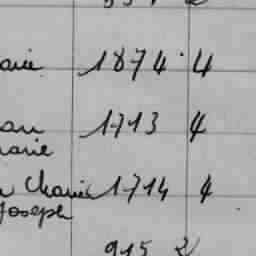 arie 1874 4
1713 4
arie
Marie 1714 4
Joseph
915 2